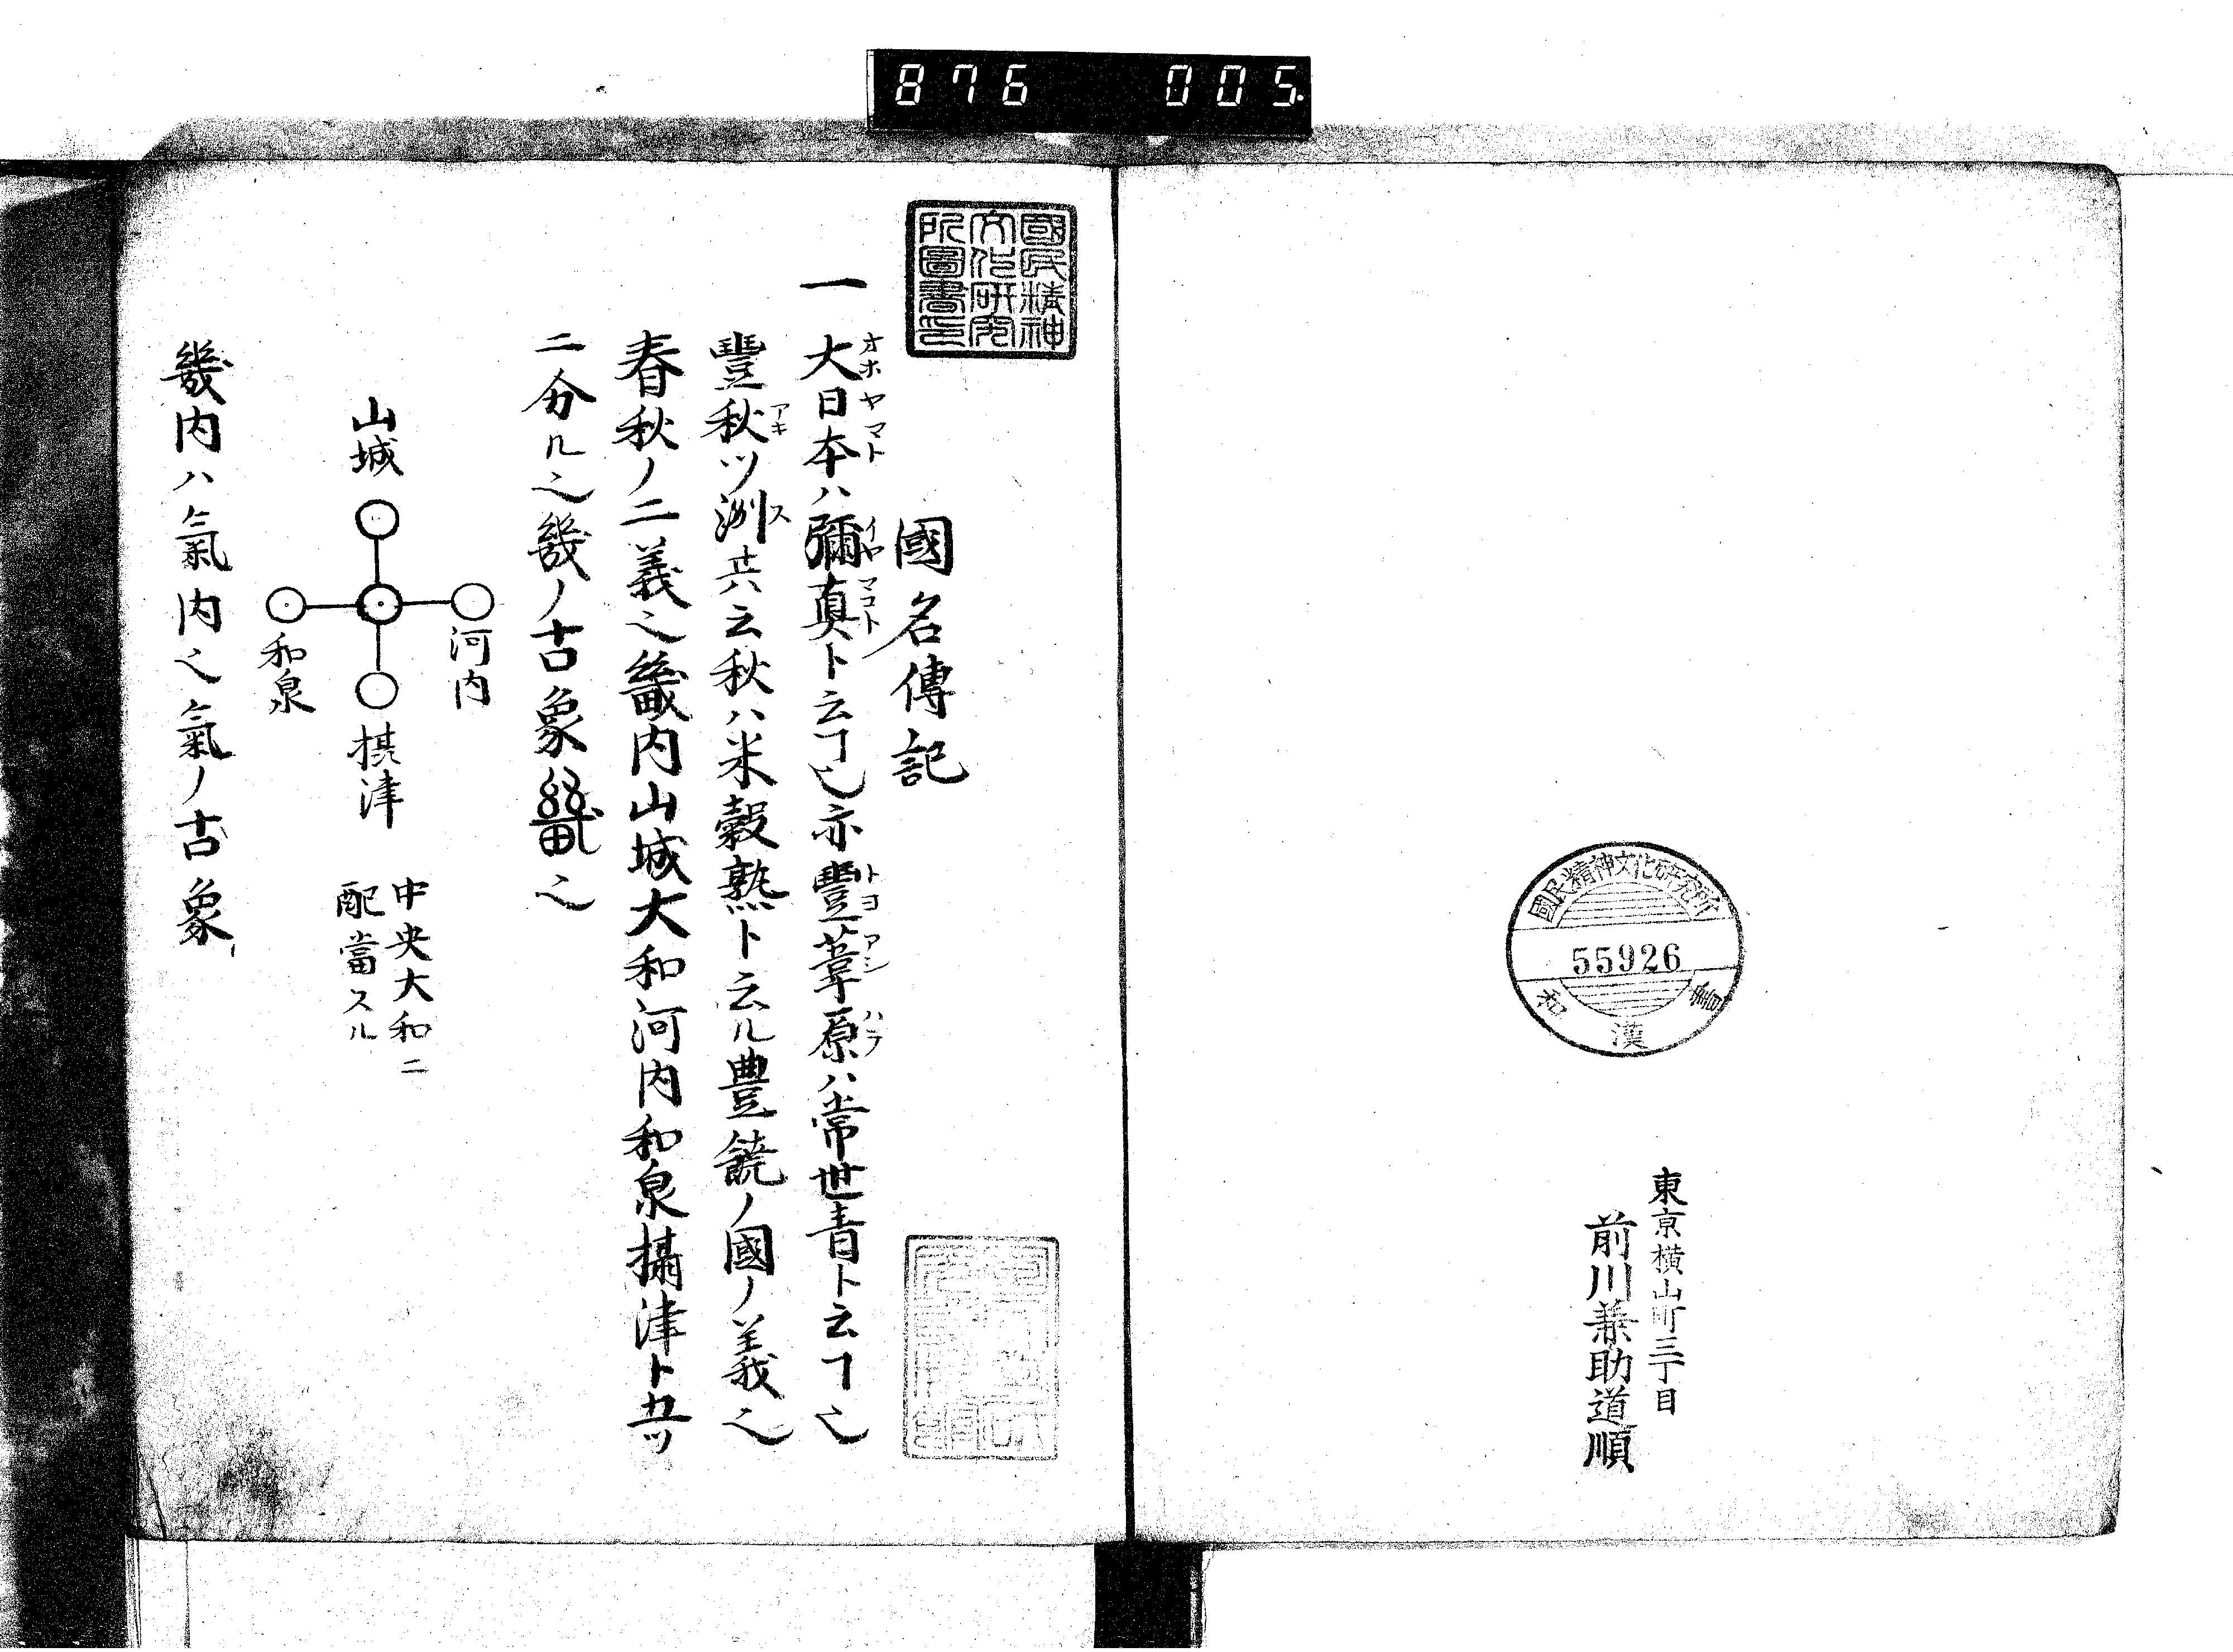 876 005
國民精神文化研究所
55926
和漢書
東京横山町三丁目
前川兼助道順
國民精神
文化研究
所圖書印
國名傳記
一大日本ハ彌眞ト云ヿ也亦豐葦原ハ常世青ト云ヿ也
オホヤマト イヤマコト トヨアシハラ
豐秋ツ洲共云秋ハ米穀熟ト云ル豊饒ノ國ノ義也
アキ ス
春秋ノ二義也畿内山城大和河内和泉攝津ト五ツ
二分ル也幾ノ古象畿也
河内
山城
摂津
和泉
中央大和ニ
配當スル
幾内ハ氣内也氣ノ古象